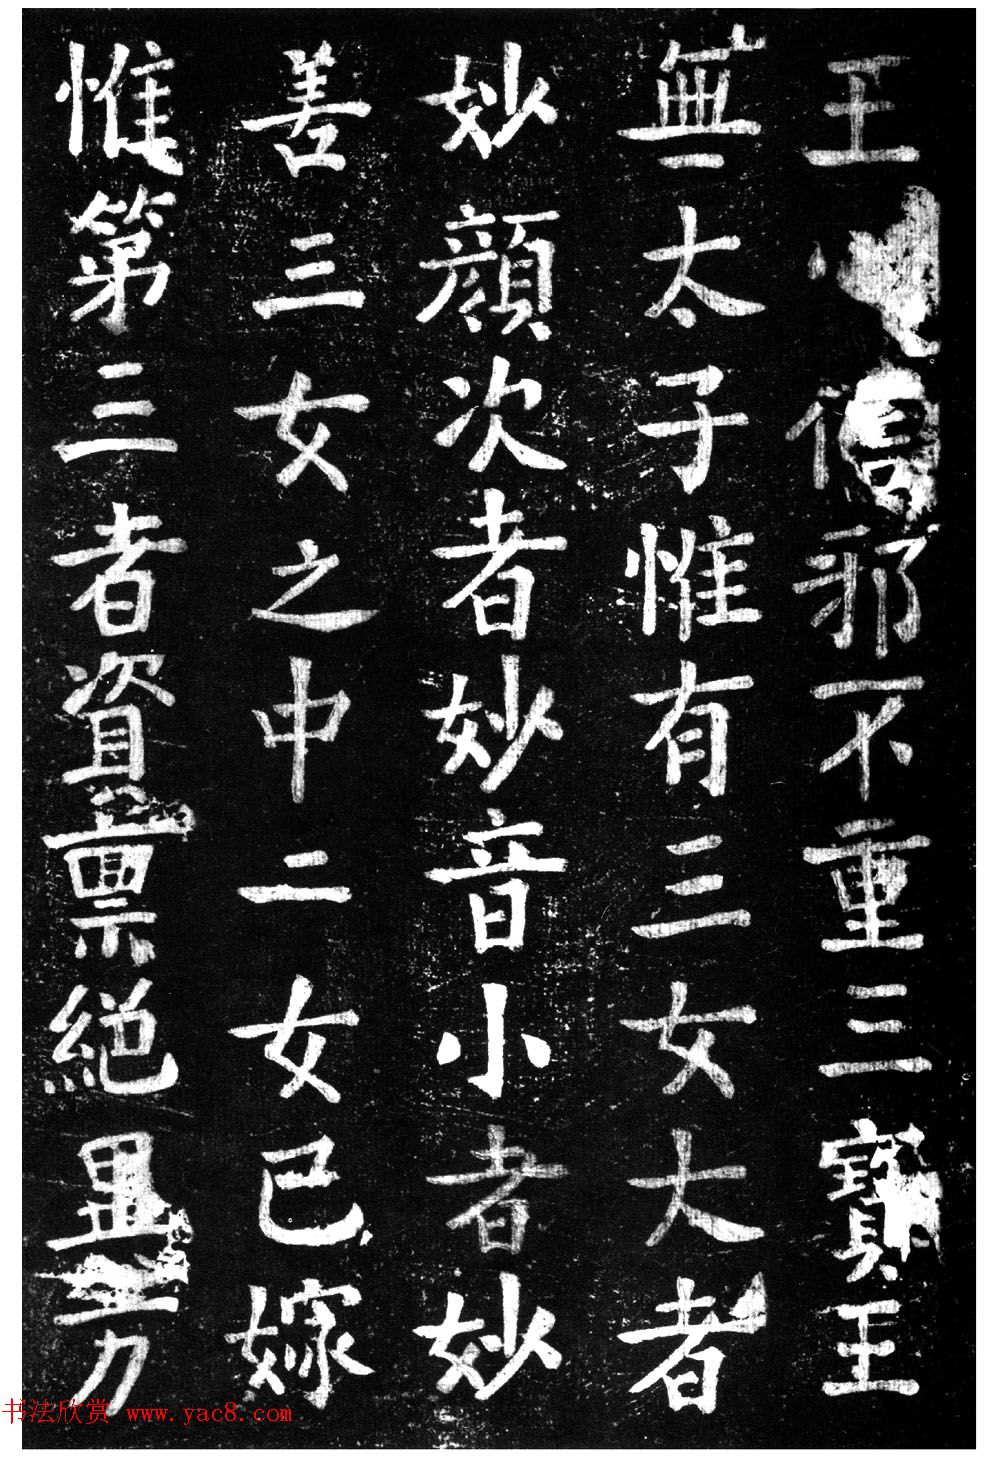 王信邪不重三寶王
無太子惟有三女大者
妙顏次者妙音小者妙
善三女之中二女已嫁
惟第三者資禀絕
书法欣赏 www.yac8.com